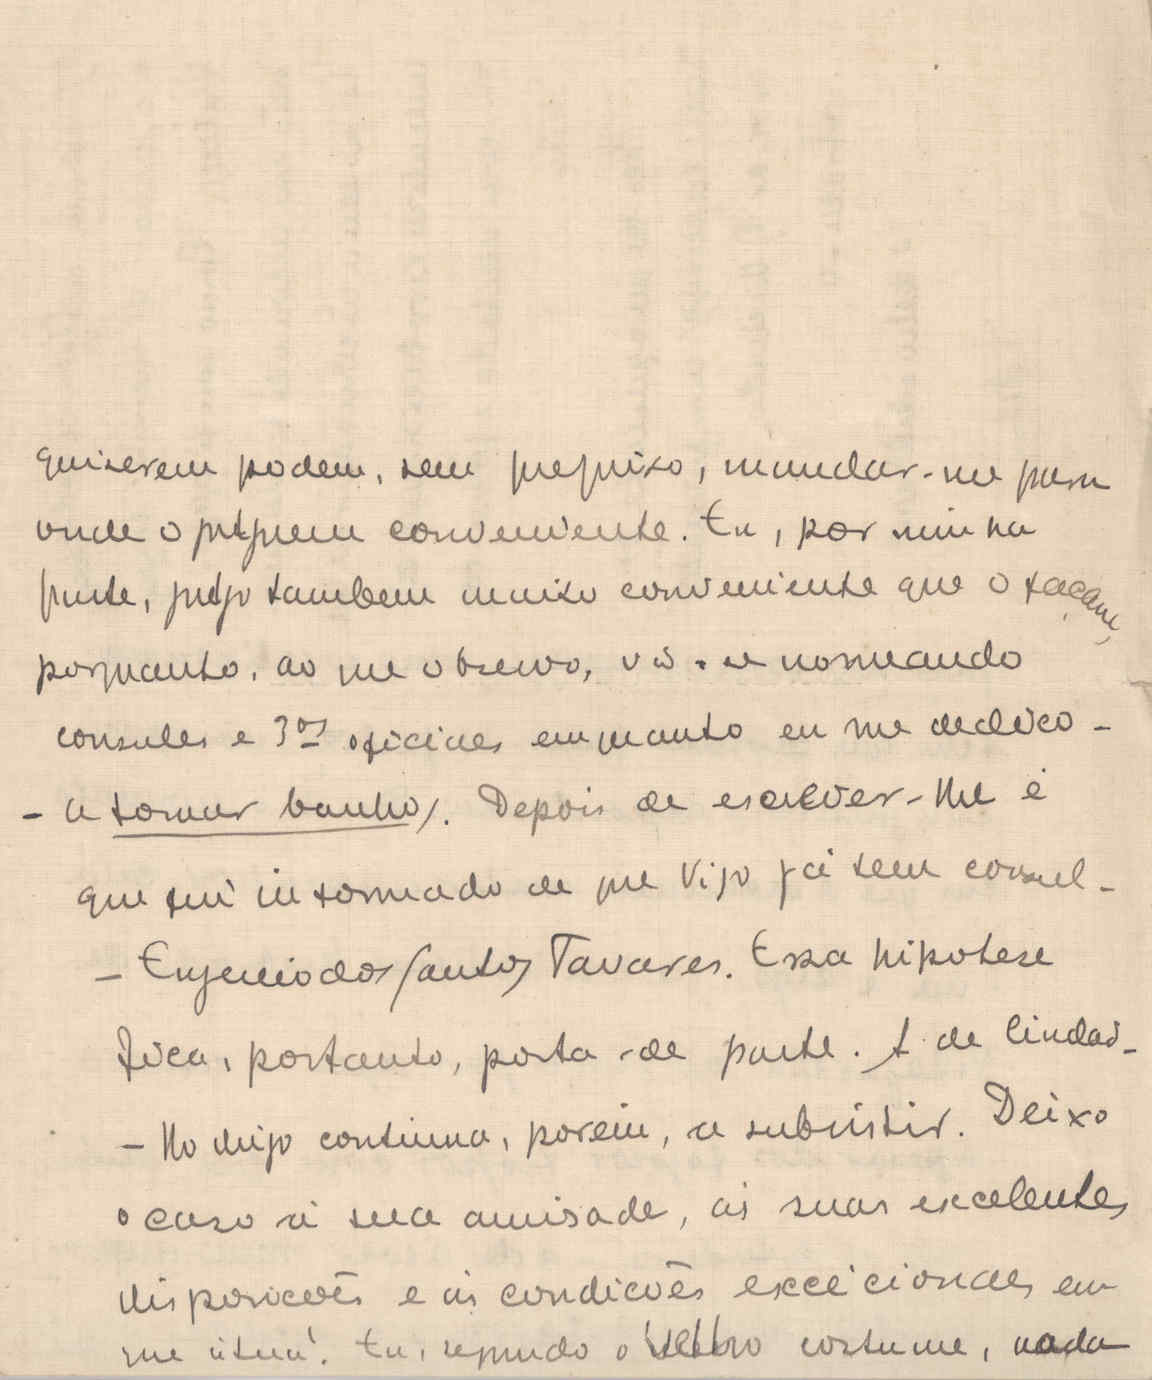 quiserem podem, sem prejuizo, mandar-me para
onde o julguem conveniente. Eu, por minha
parte, julgo tambem muito conveniente que o façam,
porquanto, ao que observo, vão-se nomeando
consules e 3os oficiaes emquanto eu me dedico-
-a tomar banhos. Depois de escrever-lhe é
que fui informado de que Vigo já tem consul-
-Eugenio dos Santos Tavares. Essa hipotese
fica, portanto, posta-de parte. A de Cindad-
-Rodrigo continua, porém, a subsistir. Deixo
o caso á sua amisade, ás suas excelentes
disposições e ás condições excécionaes em
que está. Eu, segundo o velho costume, nada